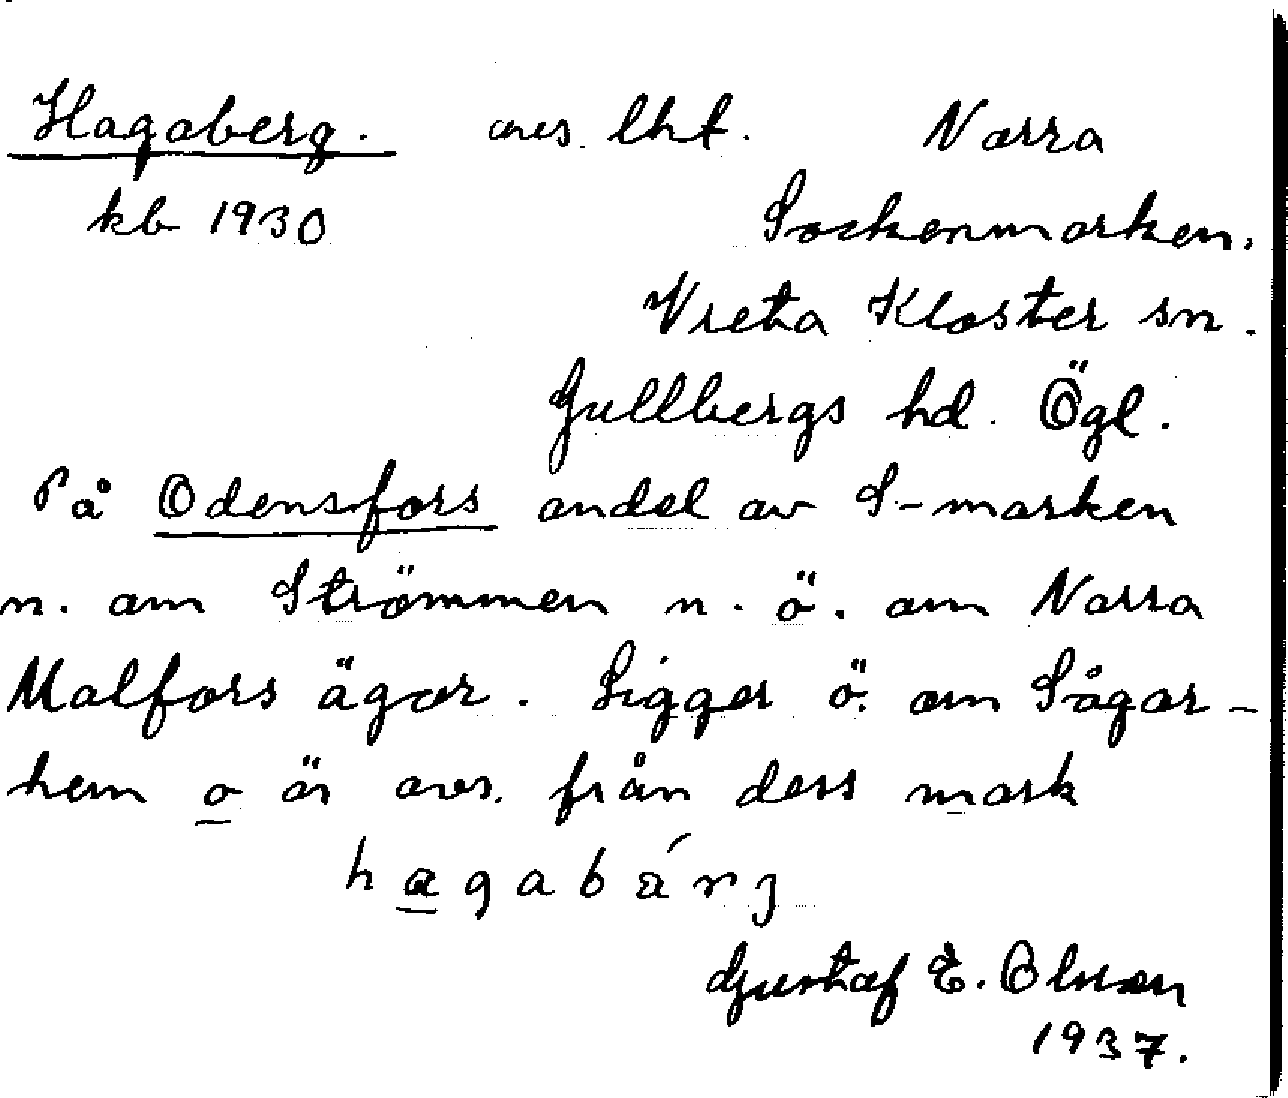 Hagaberg. avs. lht. Norra
kb 1930 Sockenmarken.
Vreta Kloster sn.
Gullbergs hd. Ögl.
På Odensfors andel av S-marken
n. om Strömmen n. ö. om Norra
Malfors ägor. Ligger ö. om Sågar-
hem o är avs. från dess mark
hagabärj
Gustaf E. Olsson
1937.